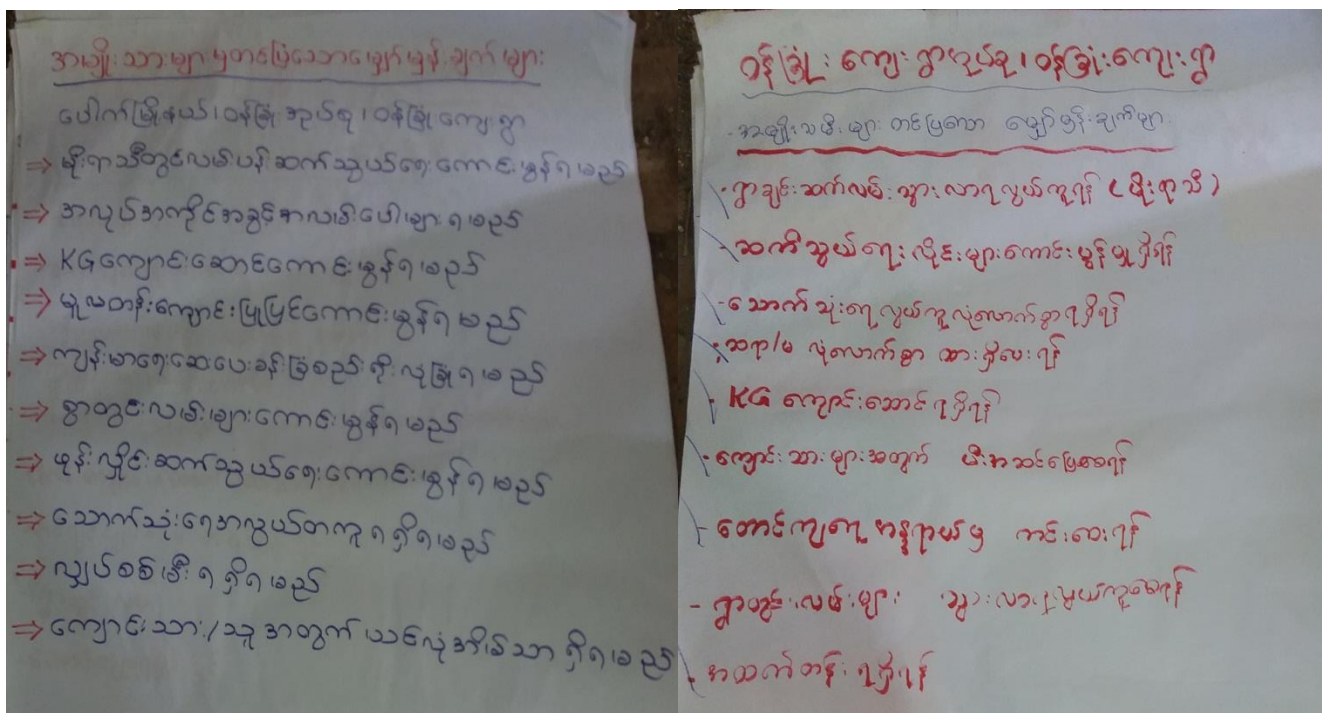 အမျိုးသားများမှတင်ပြသောမျှော်မှန်းချက်များ
ပေါက်မြို့နယ်၊ ဝန်ခြုံအုပ်စု၊ ဝန်ခြုံကျေးရွာ
⇒ မိုးရာသီတွင်လမ်းပန်းဆက်သွယ်ရေးကောင်းမွန်ရမည်
⇒ အလုပ်အကိုင်အခွင့်အလမ်းပေါများရမည်
⇒ KGကျောင်းဆောင်ကောင်းမွန်ရမည်
⇒ မူလတန်းကျောင်းပြုပြင်ကောင်းမွန်ရမည်
⇒ ကျန်းမာရေးဆေးပေးခန်းခြံစည်းရိုးလုံခြုံရမည်
⇒ ရွာတွင်းလမ်းများကောင်းမွန်ရမည်
⇒ ဖုန်းလှိုင်းဆက်သွယ်ရေးကောင်းမွန်ရမည်
⇒ သောက်သုံးရေအလွယ်တကူရရှိရမည်
⇒ လျှပ်စစ်မီးရရှိရမည်
⇒ ကျောင်းသား/သူအတွက် ယင်လုံအိမ်သာ ရှိရမည်
ဝန်ခြုံး ကျေးရွာအုပ်စု၊ ဝန်ခြုံးကျေးရွာ
အမျိုးသမီးများ တင်ပြသော မျှော်မှန်းချက်များ
- ရွာချင်းဆက်လမ်း သွားလာရလွယ်ကူရန် (မိုးရာသီ)
- ဆက်သွယ်ရေးလိုင်းများကောင်းမွန်မှုရှိရန်
- သောက်သုံးရေလွယ်ကူလုံလောက်စွာရရှိရန်
- ဆရာ/မ လုံလောက်စွာ ထားရှိပေးရန်
- KG ကျောင်းဆောင်ရရှိရန်
- ကျောင်းသားများအတွက် မီးအဆင်ပြေစေရန်
- တောင်ကျရေ အန္တရာယ်မှ ကင်းဝေးရန်
- ရွာတွင်းလမ်းများ သွားလာမှုလွယ်ကူစေရန်
- အထက်တန်း ရရှိရန်